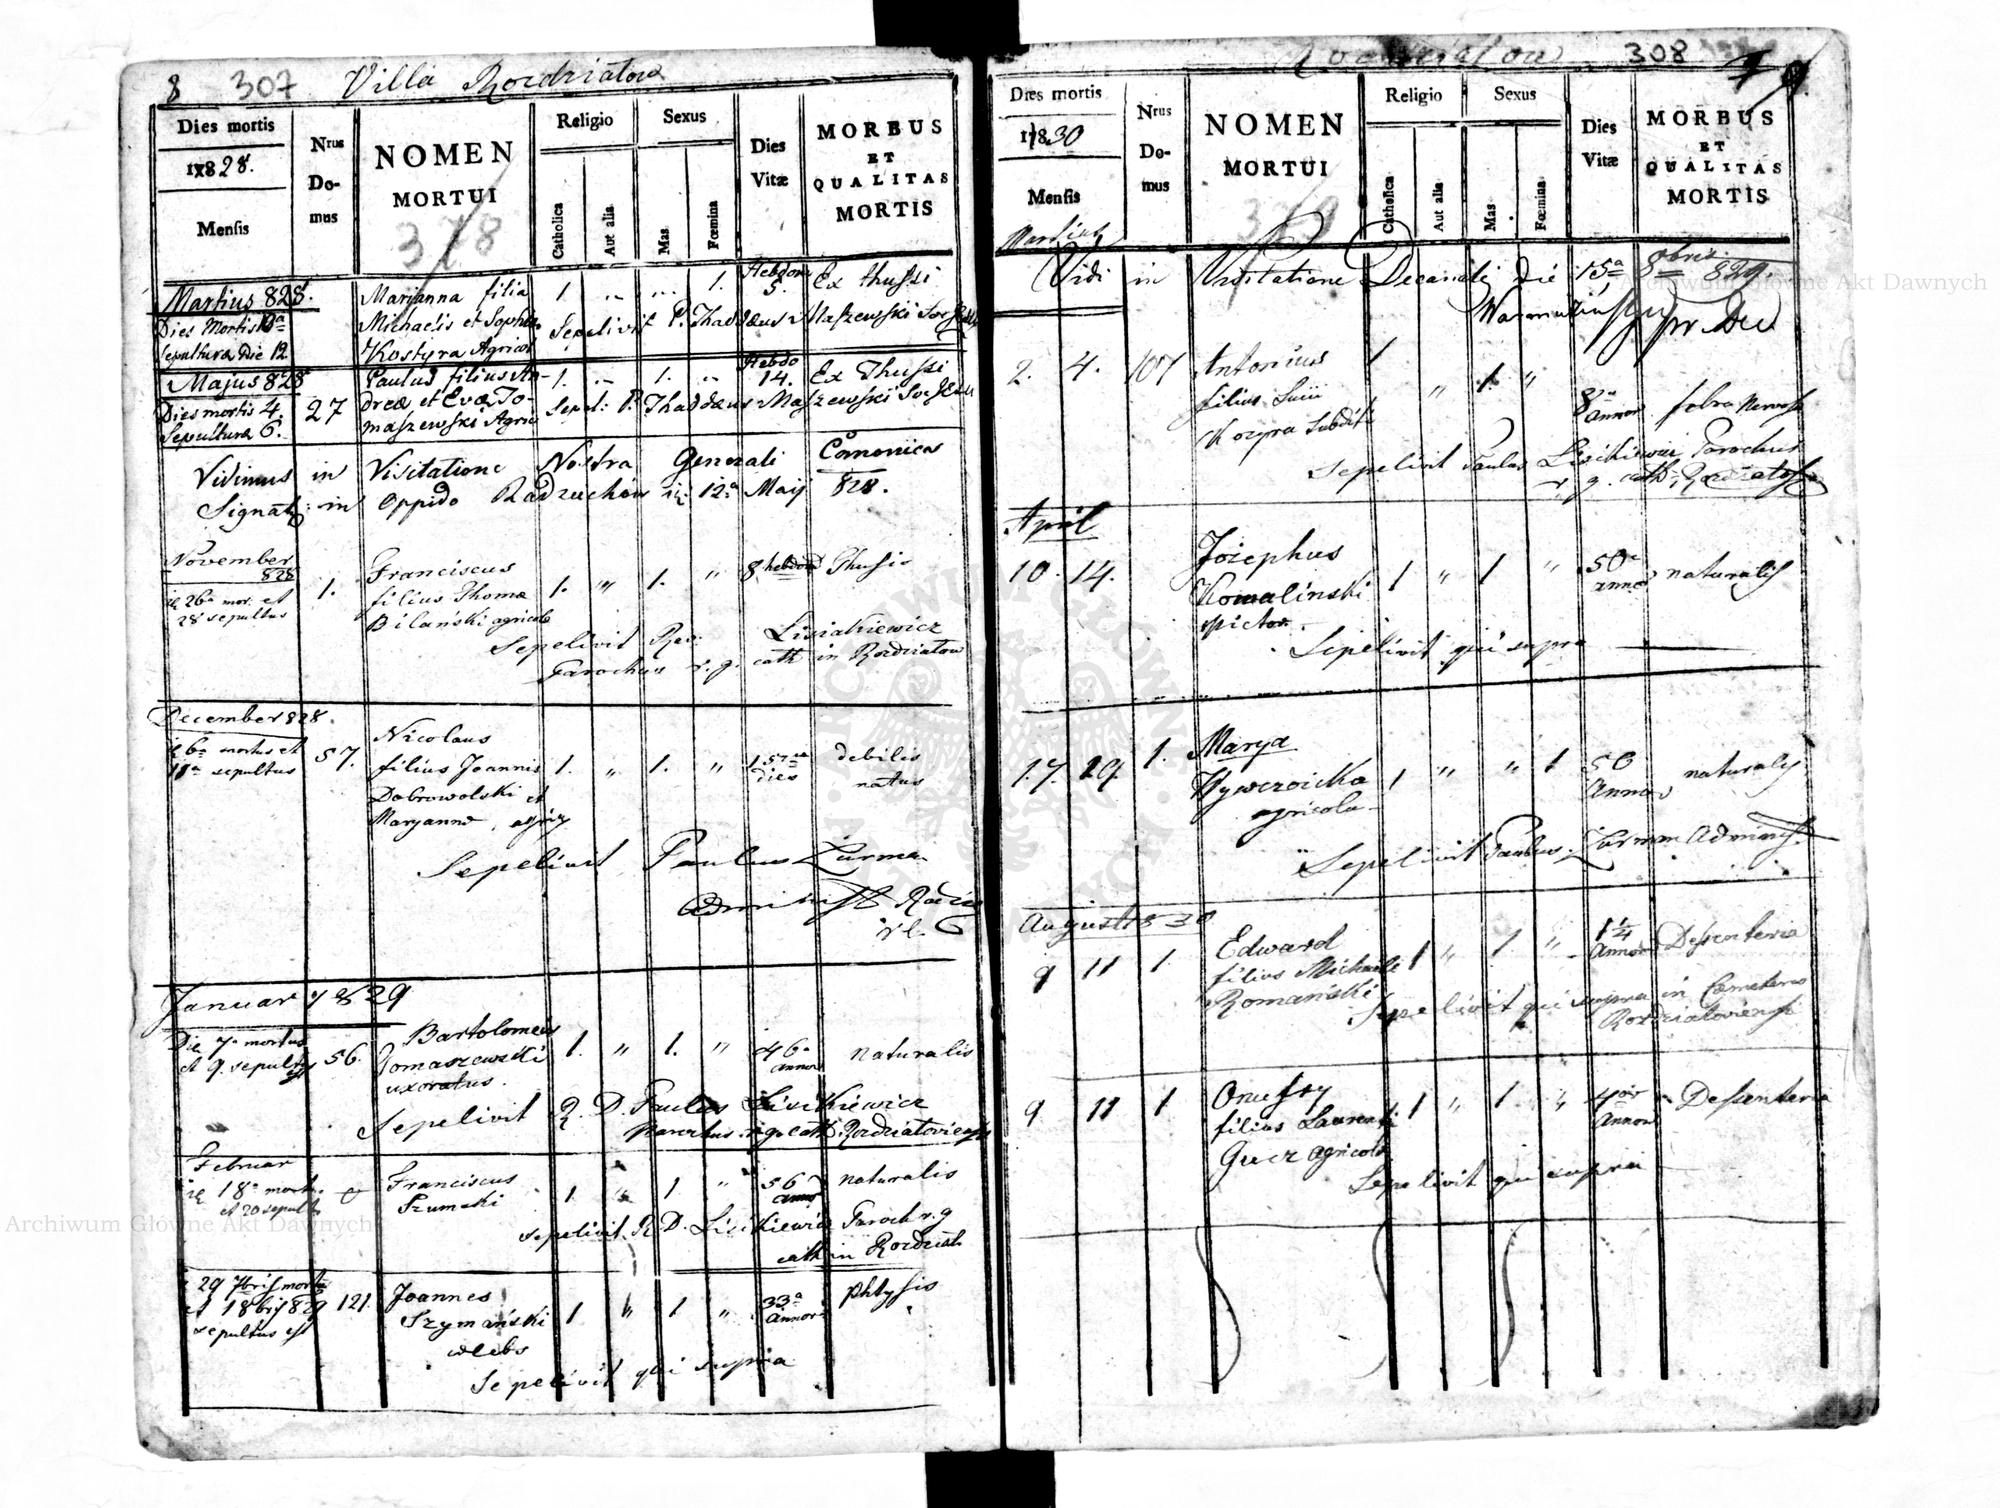 8 307 Villa Rozdziatow
Dies mortis
1828.
Mensis
Nrus
Do-
mus
NOMEN
MORTUI
378
Religio
Catholica
Aut alia
Sexus
Mas
Fœmina
Dies
Vitæ
MORBUS
ET
QUALITAS
MORTIS
Martius 828.
Dies Mortis 10a
Sepultura Die 12
Marjanna filia
Michaelis et Sophia
Kostyra Agricol
1. 1. Hebdom
5. Ex thussi
Sepelivit P. Thaddæus Maszewski
Majus 828
Dies mortis 4.
Sepultura 6.
27
Paulus filius An-
dreæ et Evæ To-
maszewski Agric
1. 1. Hebdo
14. Ex Thussi
Sepel: P. Thaddæus Maszewski
Vidimus in Visitatione Nostra Generali Canonica
Signat: in Oppido Radzuchów 12a Maij 828.
November
828
26a mor. et
28 sepultus
1.
Franciscus
filius Thomæ
Bilański agricola
1. " 1. " 8 hebdom Thusis
Sepelivit Rev: Lisikiewicz
Parochus r. g. cath in Rozdziatow
December 828.
6a mortus et
11a sepultus
57.
Nicolaus
filius Joannis
Dobrowolski et
Maryanna, agric
1. " 1. "
dies
debilis
natus
Sepelivit Paulus Zurma
Administ
Januar 1829
Die 7a mortus
et 9. sepultus
56.
Bartolomeus
Tomaszewski
uxoratus.
1. " 1. " 46a
annor
naturalis
Sepelivit R. D. Paulus Lisikiewicz
Parochus r. g. cath Rozdziatoviensis
Februar
18a mort.
et 20 sepult
Franciscus
Szumski
1. " 1 " 56
annor
naturalis
sepelivit R. D. Lisikiewicz Paroch r. g
cath in Rozdziat.
29 7bris mortus
et 1 8bris 829
sepultus est
121.
Joannes
Szymański
1 " 1 " 33a
annor
Phtysis
Sepelivit qui supra
308
Dies mortis
1830
Mensis
Nrus
Do-
mus
NOMEN
MORTUI
379
Religio
Catholica
Aut alia
Sexus
Mas
Fœmina
Dies
Vitæ
MORBUS
ET
QUALITAS
MORTIS
Martius
Vidi in Visitatione Decanali die 15a 8bris 829.
2. 4. 107
Antonius
filius
Kozyra subditi
1 " 1. " 8va
annor febra nervosa
Sepelivit Paulus Lisikiewicz Parochus
r. g. cath. Rozdziatow
April
10. 14.
Józephus
Komalinski
pictor.
1 " 1 " 50a
annor naturalis
Sepelivit qui supra
17. 19. 1.
Marya
agricola
1 " " 1 50
Annor naturalis
Sepelivit Paulus Zurman Administ.
August 1830
9 11 1.
Edward
filius Michaele
Romański
1 " 1. " 1 1/4
annor Desenteria
Sepelivit qui supra in Cæmeterio
Rozdziatoviensi
9 11 1
Onufry
filius Laurenti
Gucz agricola
1 " 1. " 4or
Annor Desenteria
Sepelivit qui supra
Archiwum Główne Akt Dawnych
Archiwum Główne Akt Dawnych